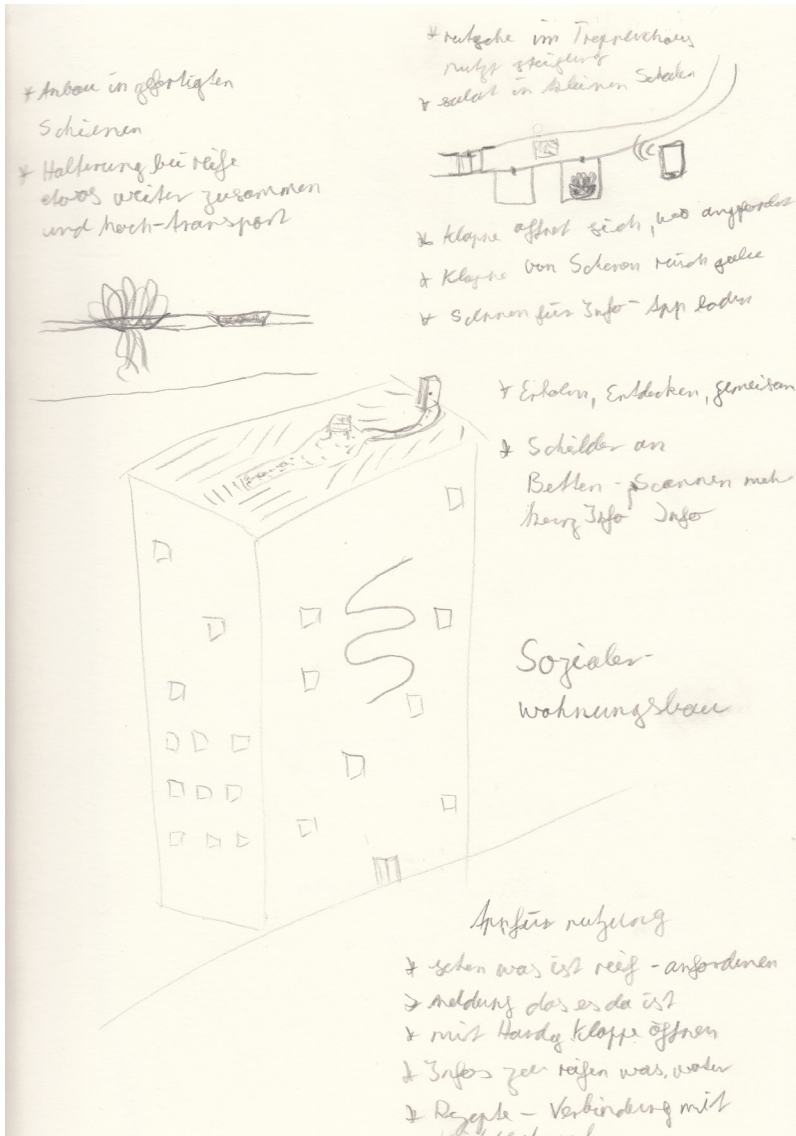 * Anbau in gefertigten
Schienen
* Halterung bei reife
etwas weiter zusammen
und hoch-transport
* rutsche im Treppenhaus
nutzt steigung
* salat in kleinen
* Klappe öffnet sich, wo angefordert
* Klappe von
* Scannen für Info - App laden
* Erholen, Entdecken, gemeinsam
* Schilder an
Betten - Scannen mehr
kurz Info Info
Sozialer-
wohnungsbau
App für nutzung
* sehen was ist reif - anfordern
* meldung das es da ist
* mit Handy Klappe öffnen
* Infos zu reifen was, wieter
* Rezepte - Verbindung mit